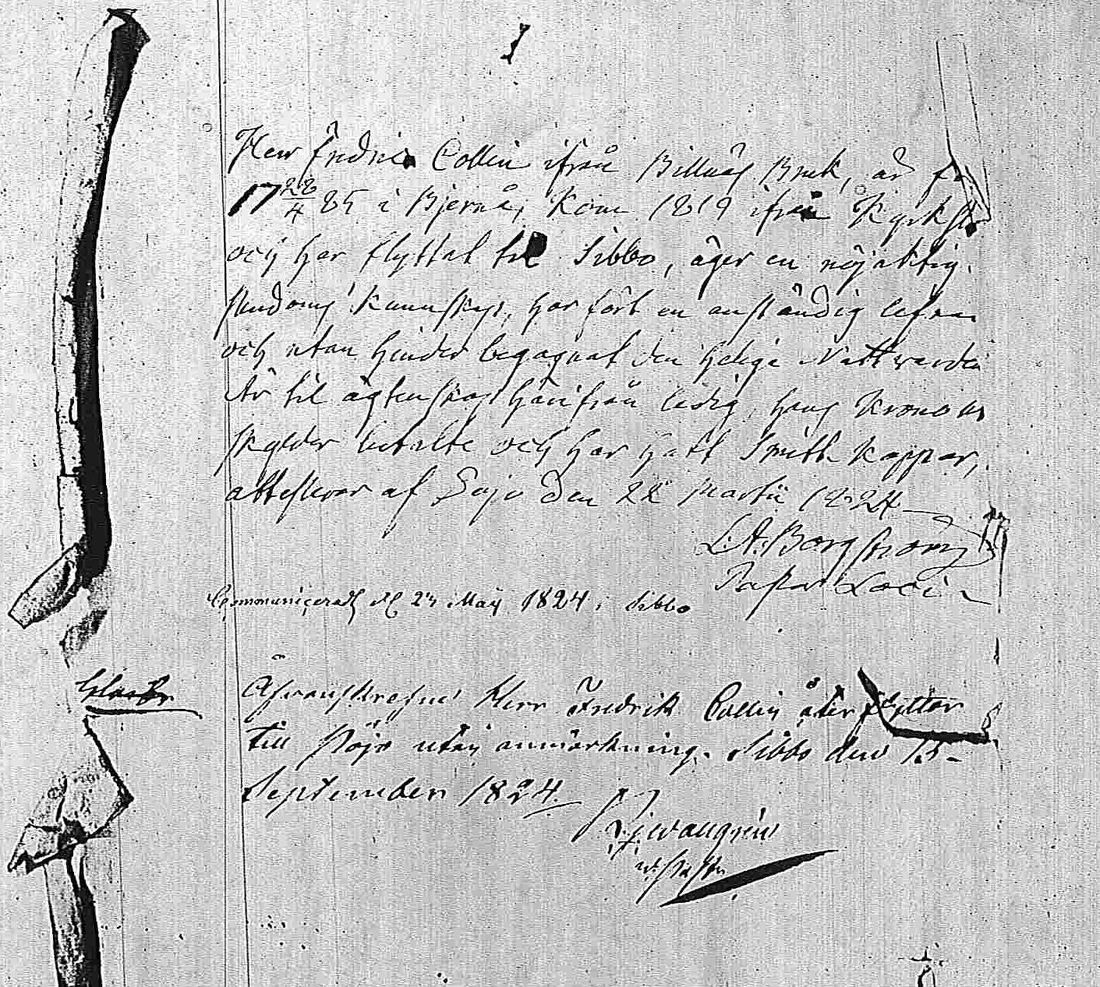 Herr Fredric Collin ifrån Billnäs Bruk, är fö
17 28/4 85 i Bjernå, kom 1819 ifrån Kyrkslä
och har flyttat til Sibbo, äger en nöjaktig
kunskap, har fört en anständig lefna
och utan hinder begagnat den Helige Nattvarden
Är til ägtenskap härifrån ledig, hans Krono ut
skylder betalte och har haft Smitt Koppor,
attesteras af Pojo den 22 Martii 1824
L. A. Borgström
Pastor Loci
Communicerade d. 23 Maij 1824 i Sibbo
Ofvanskrefne Herr Fredrik Collin åter flyttar
till Pojo utan anmärkning. Sibbo den 15
September 1824.